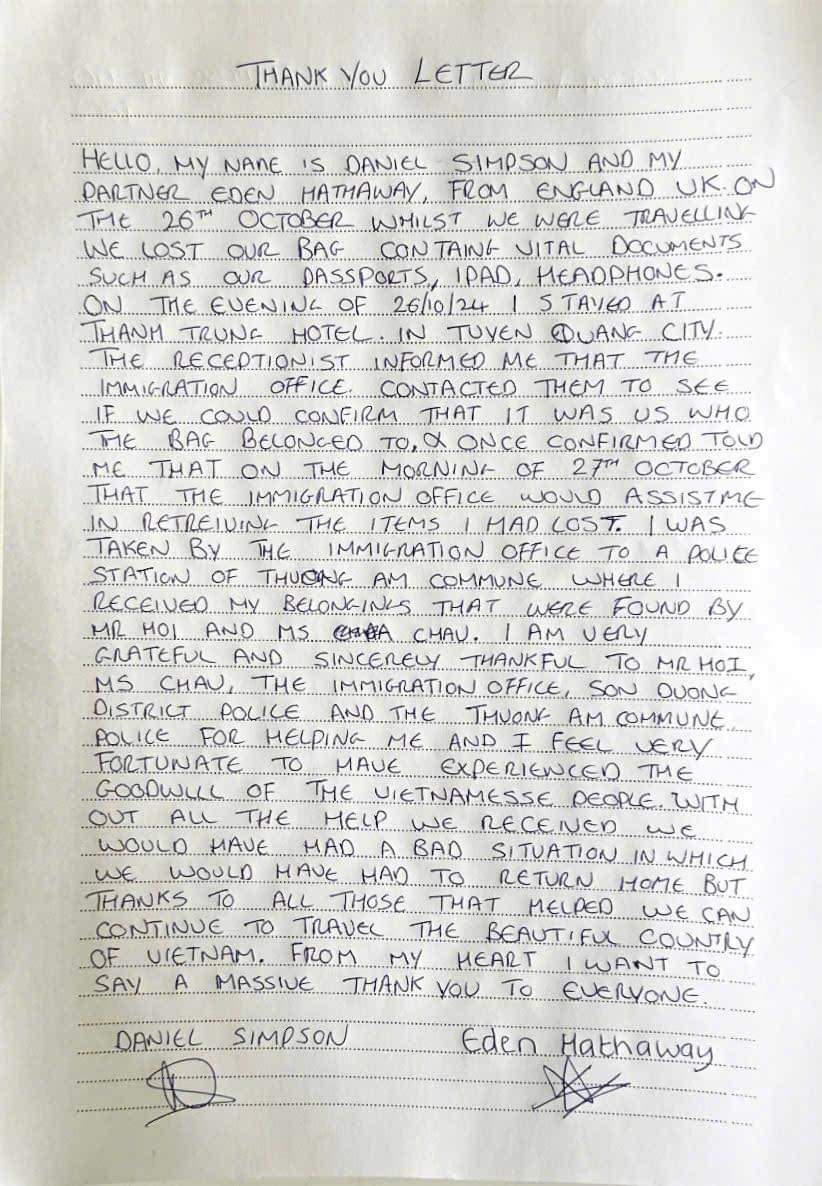 THANK YOU LETTER
HELLO, MY NAME IS DANIEL SIMPSON AND MY
PARTNER EDEN HATHAWAY, FROM ENGLAND UK. ON
THE 26TH OCTOBER WHILST WE WERE TRAVELLING
WE LOST OUR BAG CONTAING VITAL DOCUMENTS
SUCH AS OUR PASSPORTS, IPAD, HEADPHONES.
ON THE EVENING OF 26/10/24 I STAYED AT
THANH TRUNG HOTEL. IN TUYEN QUANG CITY.
THE RECEPTIONIST INFORMED ME THAT THE
IMMIGRATION OFFICE. CONTACTED THEM TO SEE
IF WE COULD CONFIRM THAT IT WAS US WHO
THE BAG BELONGED TO, & ONCE CONFIRMED TOLD
ME THAT ON THE MORNING OF 27TH OCTOBER
THAT THE IMMIGRATION OFFICE WOULD ASSIST ME
IN RETREIVING THE ITEMS I HAD LOST. I WAS
TAKEN BY THE IMMIGRATION OFFICE TO A POLICE
STATION OF THUONG AM COMMUNE WHERE I
RECEIVED MY BELONGINGS THAT WERE FOUND BY
MR HOI AND MS CHAU. I AM VERY
GRATEFUL AND SINCERELY THANKFUL TO MR HOI,
MS CHAU, THE IMMIGRATION OFFICE, SON DUONG
DISTRICT POLICE AND THE THUONG AM COMMUNE
POLICE FOR HELPING ME AND I FEEL VERY
FORTUNATE TO HAVE EXPERIENCED THE
GOODWILL OF THE VIETNAMESSE PEOPLE. WITH
OUT ALL THE HELP WE RECEIVED WE
WOULD HAVE HAD A BAD SITUATION IN WHICH
WE WOULD HAVE HAD TO RETURN HOME BUT
THANKS TO ALL THOSE THAT HELPED WE CAN
CONTINUE TO TRAVEL THE BEAUTIFUL COUNTRY
OF VIETNAM. FROM MY HEART I WANT TO
SAY A MASSIVE THANK YOU TO EVERYONE.
DANIEL SIMPSON Eden Hathaway